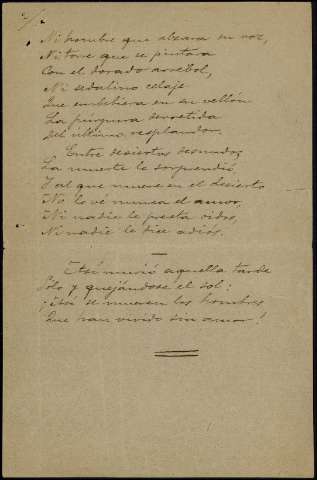 2/
Ni hombre que alzara su voz,
Ni torre que se pintara
Con el dorado arrebol,
Ni sedalino celaje
Que embebiera en su vellón
La púrpura
Del último resplandor.
Entre desiertos desnudos
La muerte le sorprendió,
Y al que muere en el desierto
No lo vé nunca el amor,
Ni nadie le presta oidos,
Ni nadie le dice adiós.
—
Así murió aquella tarde
Solo y quejándose el sol:
¡Así se mueren los hombres
Que han vivido sin amor!